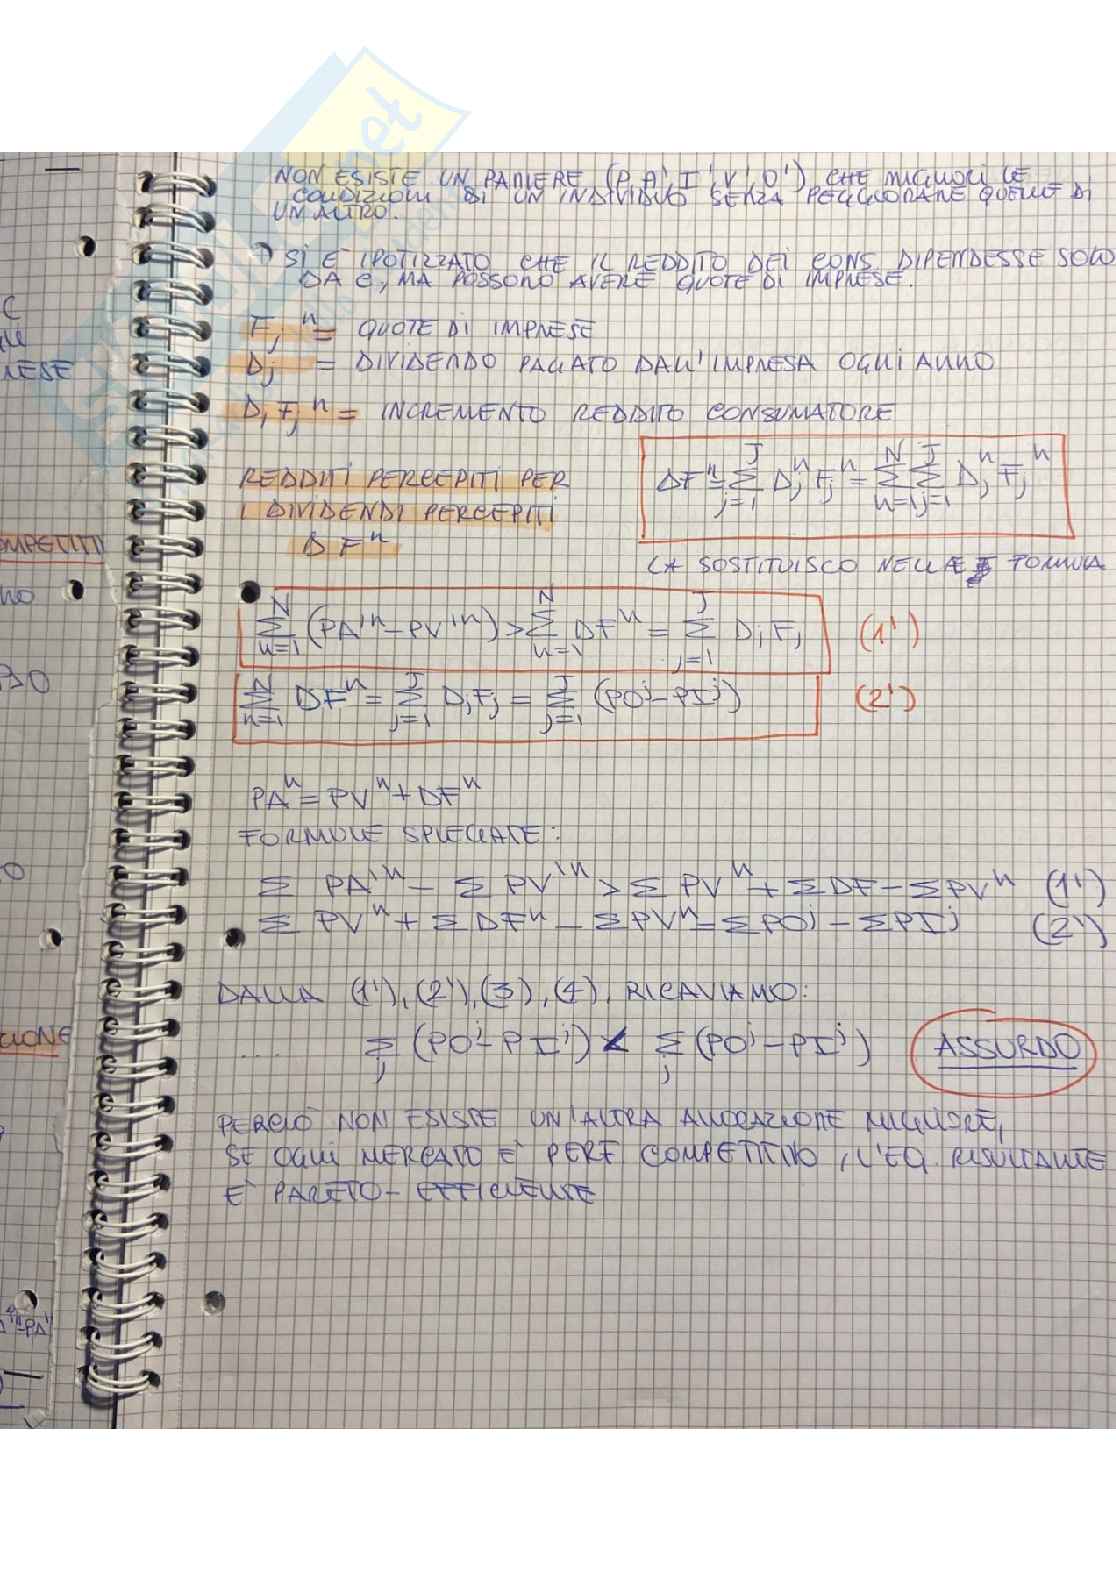 NON ESISTE UN PANIERE (P, A', I', V', O') CHE MIGLIORI LE
CONDIZIONI DI UN INDIVIDUO SENZA PEGGIORARE QUELLE DI
UN ALTRO.
SI È IPOTIZZATO CHE IL REDDITO DEI CONS. DIPENDESSE SOLO
DA E, MA POSSONO AVERE QUOTE DI IMPRESE.
Fⱼⁿ = QUOTE DI IMPRESE
Dⱼ = DIVIDENDO PAGATO DALL'IMPRESA OGNI ANNO
DⱼFⱼⁿ = INCREMENTO REDDITO CONSUMATORE
REDDITI PERCEPITI PER
I DIVIDENDI PERCEPITI
DFⁿ
DFⁿ = Σ_{j=1}^{J} Dⱼⁿ Fⱼⁿ = Σ_{n=1}^{N} Σ_{j=1}^{J} Dⱼⁿ Fⱼⁿ
SOSTITUISCO NELLE FORMULA
Σ_{n=1}^{N} (PA'ⁿ - PV'ⁿ) > Σ_{n=1}^{N} DFⁿ = Σ_{j=1}^{J} DⱼFⱼ (1')
Σ_{n=1}^{N} DFⁿ = Σ_{j=1}^{J} DⱼFⱼ = Σ_{j=1}^{J} (POʲ - PIʲ) (2')
PAⁿ = PVⁿ + DFⁿ
FORMULE SPIEGATE:
Σ PA'ⁿ - Σ PV'ⁿ > Σ PVⁿ + Σ DF - Σ PVⁿ (1')
Σ PVⁿ + Σ DFⁿ - Σ PVⁿ = Σ POʲ - Σ PIʲ (2')
DALLA (1'), (2'), (3), (4), RICAVIAMO:
Σⱼ (POʲ - PIʲ) < Σⱼ (POʲ - PIʲ) ASSURDO
PERCIÒ NON ESISTE UN'ALTRA ALLOCAZIONE MIGLIORE,
SE OGNI MERCATO È PERF COMPETITIVO, L'EQ. RISULTANTE
È PARETO-EFFICIENTE